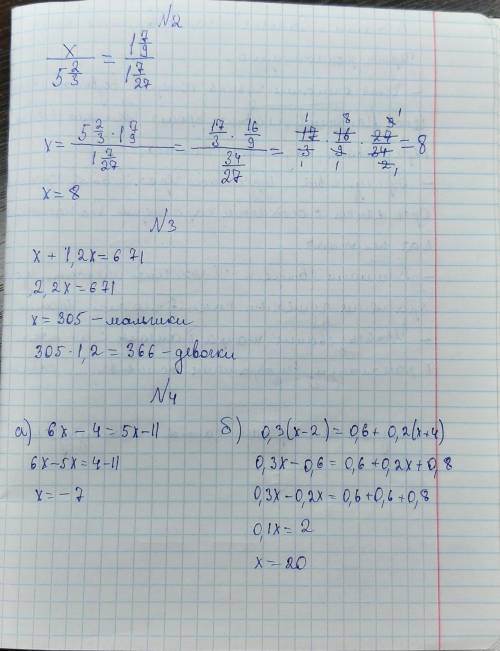 №2
x / 5 2/3 = 1 7/9 / 1 7/27
x = 5 2/3 · 1 7/9 / 1 7/27 = 17/3 · 16/9 / 34/27 = 17/3 · 16/9 · 27/34 = 8
x = 8
№3
x + 1,2x = 671
2,2x = 671
x = 305 – мальчики
305 · 1,2 = 366 – девочки
№4
а) 6x – 4 = 5x – 11
6x – 5x = 4 – 11
x = – 7
б) 0,3(x – 2) = 0,6 + 0,2(x + 4)
0,3x – 0,6 = 0,6 + 0,2x + 0,8
0,3x – 0,2x = 0,6 + 0,6 + 0,8
0,1x = 2
x = 20